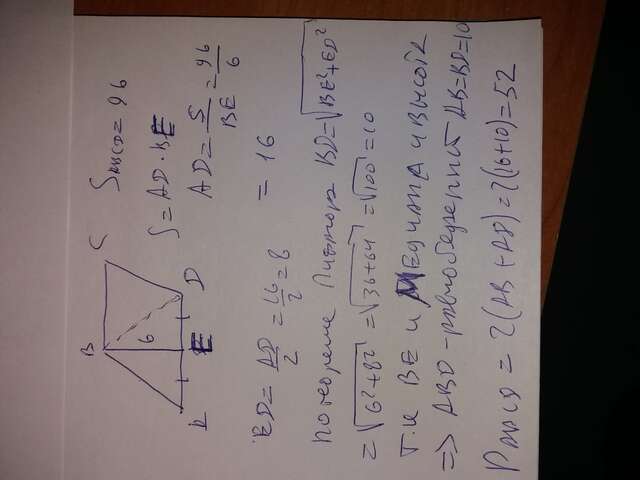 B C
6
A E D
S ABCD = 96
S = AD · BE
AD = S/BE = 96/6 = 16
ED = AD/2 = 16/2 = 8
по теореме Пифагора BD = √BE²+ED² =
= √6²+8² = √36+64 = √100 = 10
т.к BE и медиана и высота
=> ABD - равнобедренный AB=BD=10
P ABCD = 2(AB+AD) = 2(16+10) = 52